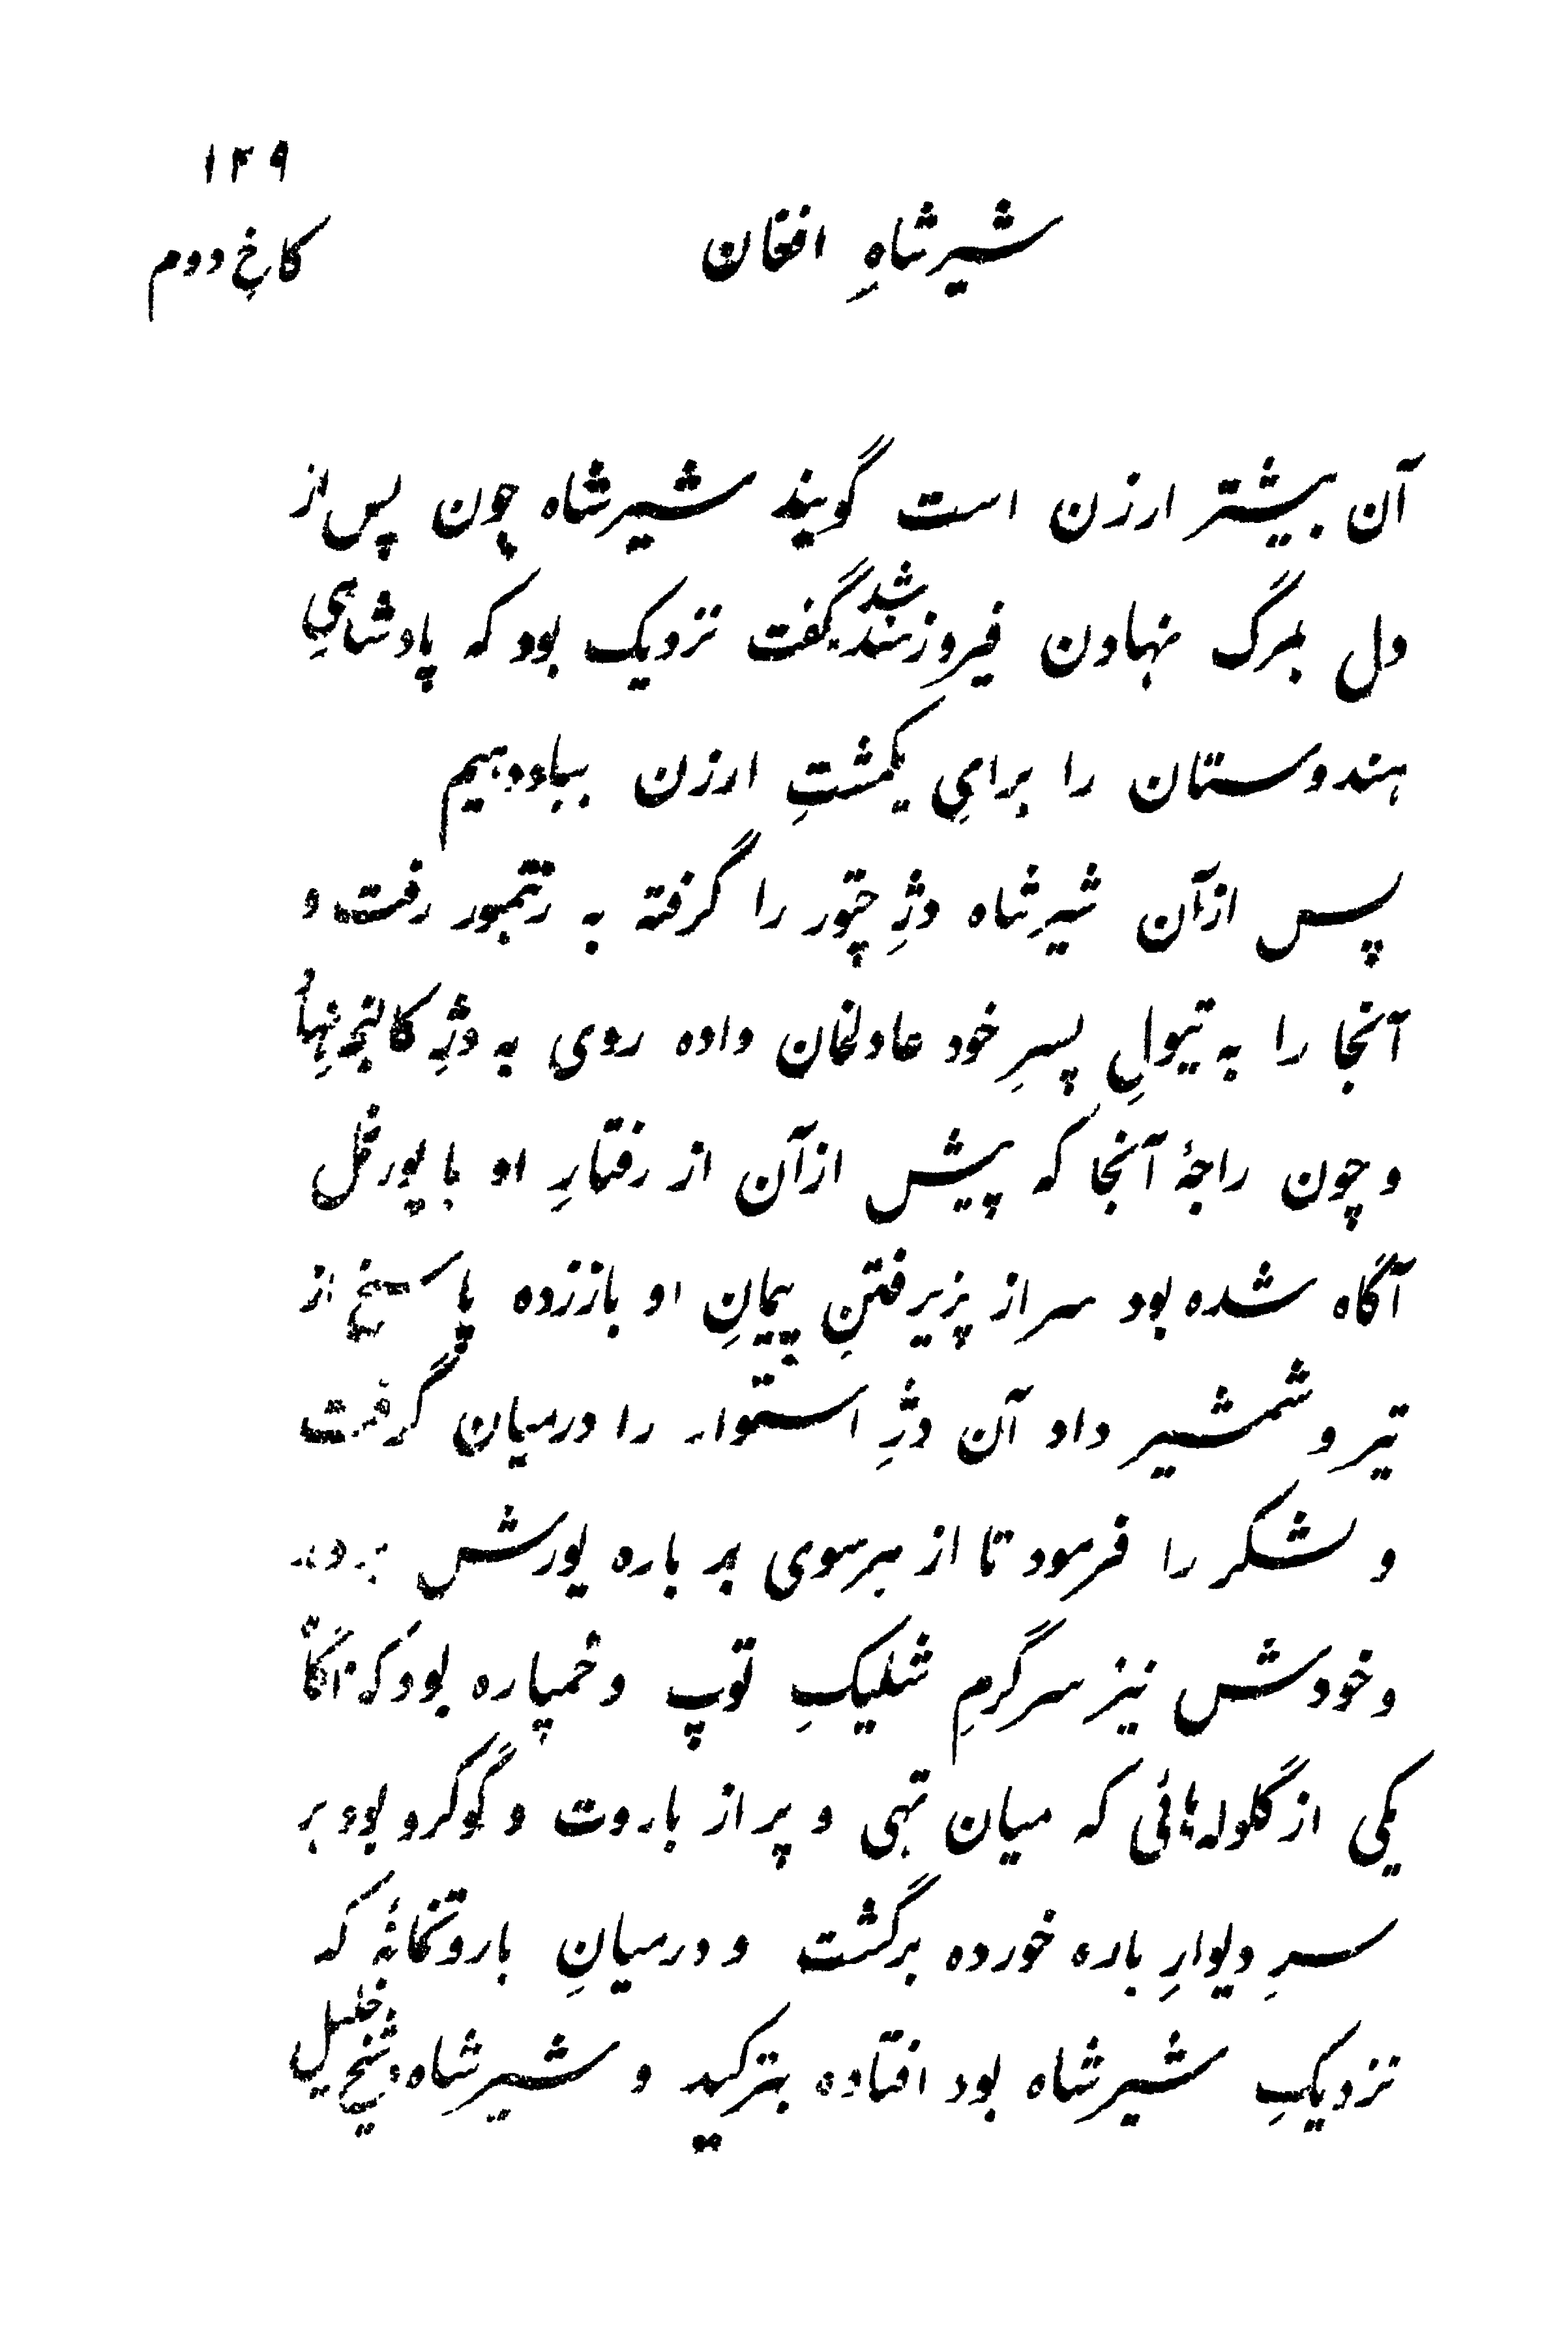 ۱۴۹
شیرشاهِ افغان
کاخِ دوم
آن بیشتر ارزن است گویند شیرشاه چون پس از
دل بمرگ نهادن فیروزمند شد گفت نزدیک بود که پادشاهیِ
هندوستان را برایِ یکمشتِ ارزن بباددهیم
پس ازآن شیرشاه دژِ چتور را گرفته به رنتمبور رفت و
آنجا را به تیولِ پسرِ خود عادلخان داده روی به دژِ کالنجر نهاد
و چون راجهٔ آنجا که پیش ازآن از رفتارِ او با پورنمل
آگاه شده بود سر از پزیرفتنِ پیمانِ او باززده پاسخ از
تیر و شمشیر داد آن دژِ استوار را درمیان گرفت
و لشکر را فرمود تا از هرسوی بر باره یورش بردند
و خودش نیز سرگرمِ شلیکِ توپ و خمپاره بود که ناگاه
یکی از گلوله‌هائی که میان تهی و پر از باروت و گوگرد بود بر
سرِ دیوارِ باره خورده برگشت و درمیانِ باروتخانهٔ که
نزدیکِ شیرشاه بود افتاده بترکید و شیرشاه و شیخ خلیل